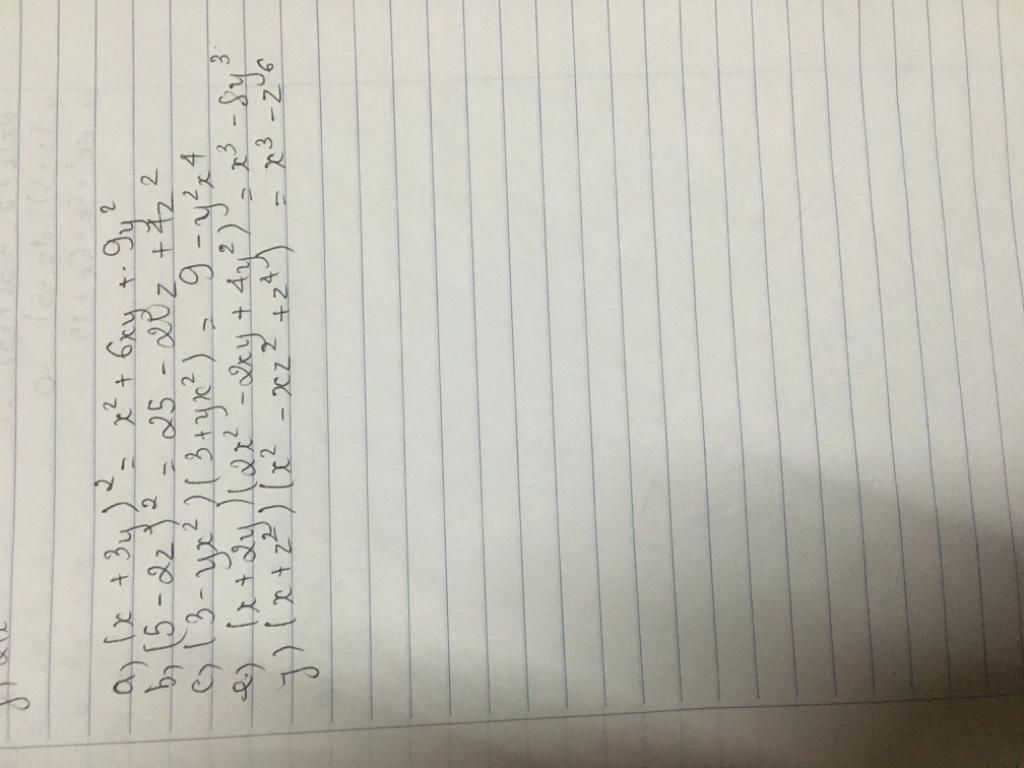 a) (x + 3y)² = x² + 6xy + 9y²
b) (5 - 2z)² = 25 - 20z + 4z²
c) (3 - yx²)(3 + yx²) = 9 - y²x4
e) (x + 2y)(2x² - 2xy + 4y²) = x³ - 8y³
y) (x + z²)(x² - xz² + z⁴) = x³ - z⁶